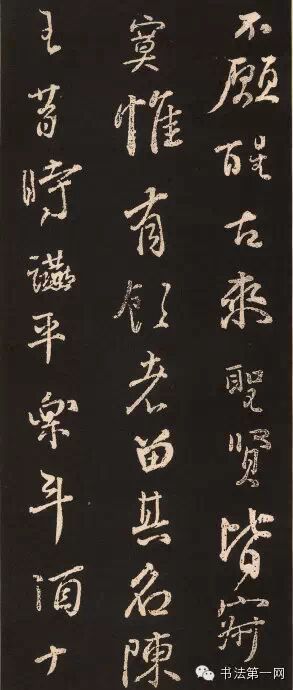 不願醒古來聖賢皆寂
寞惟有飲者留其名陳
王昔時讌平樂斗酒十
书法第一网